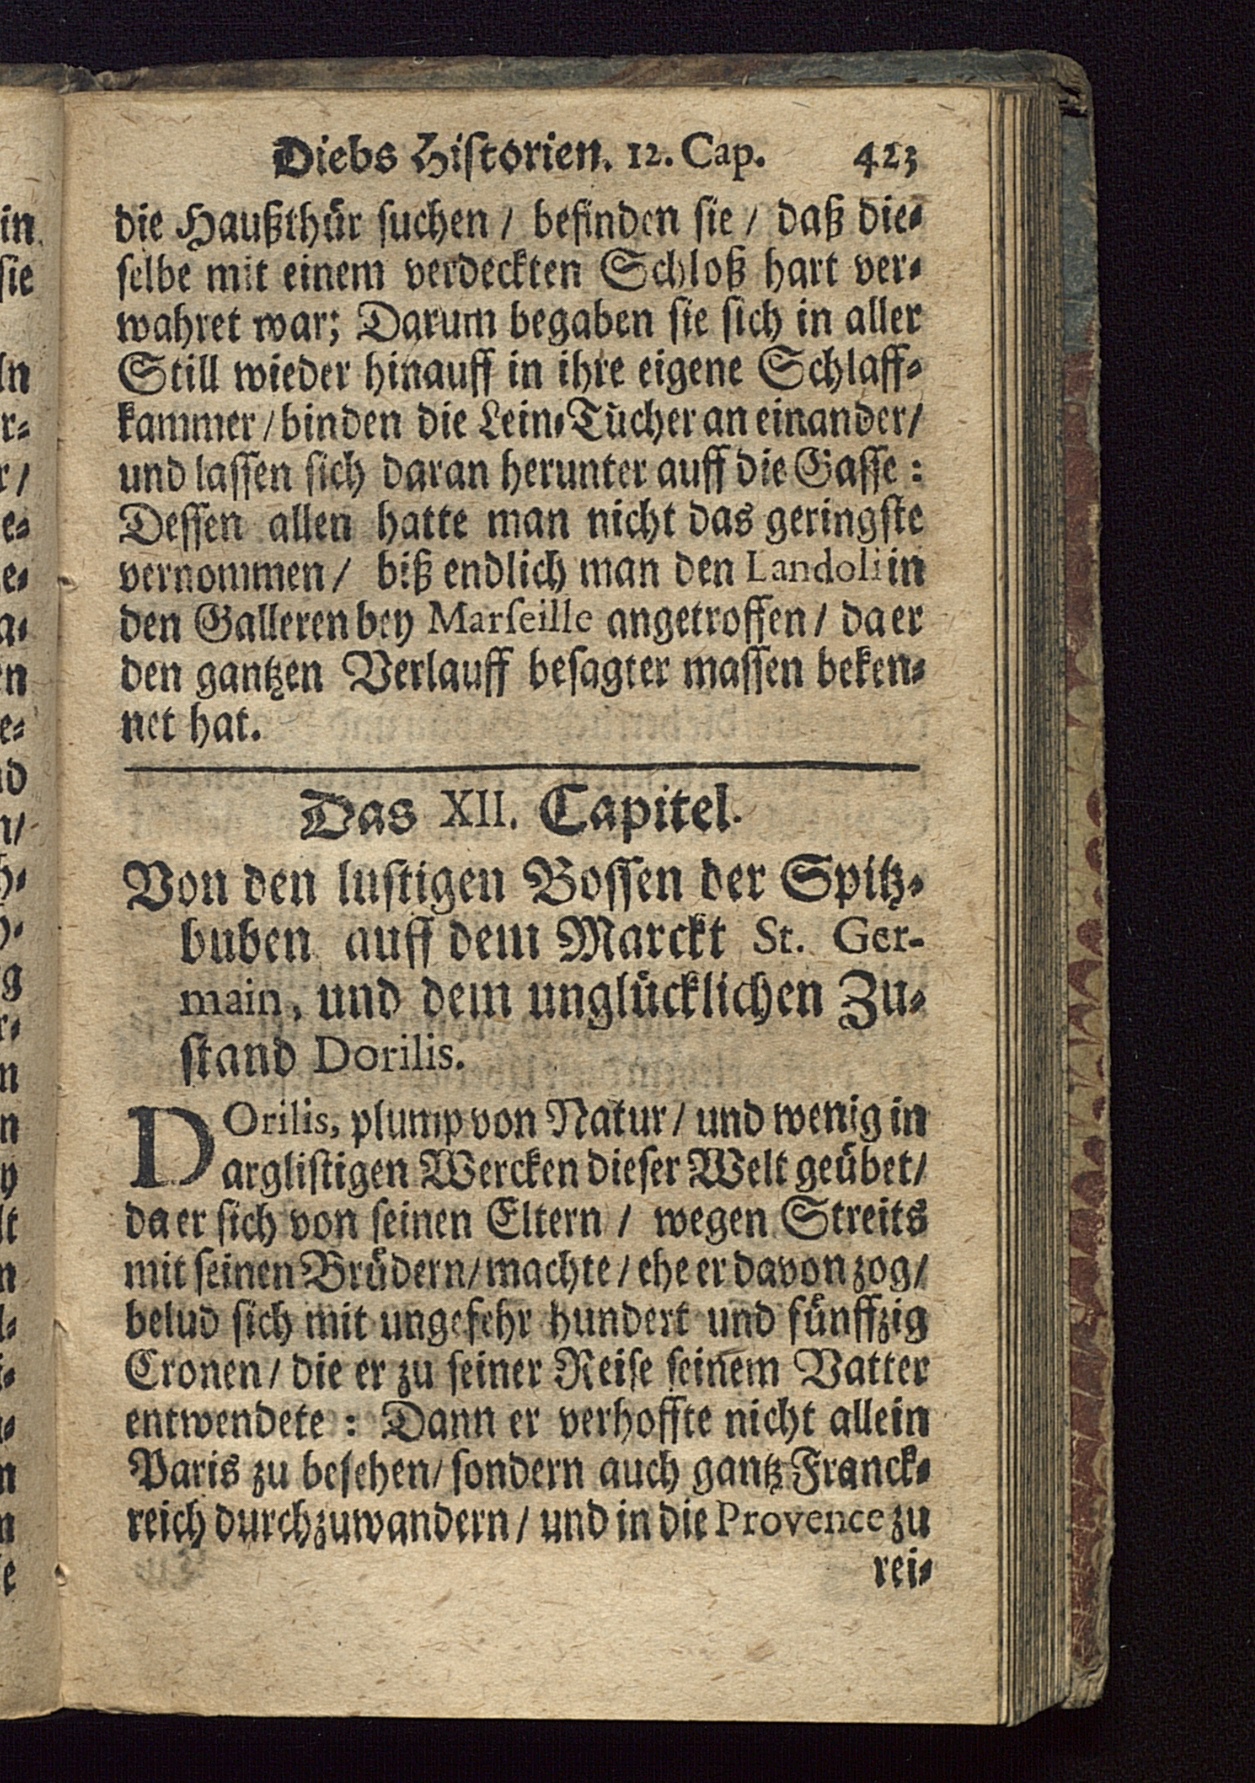 Diebs Historien. 12. Cap. 423
die Haußthür suchen / befinden sie / daß die-
selbe mit einem verdeckten Schloß hart ver-
wahret war; Darum begaben sie sich in aller
Still wieder hinauff in ihre eigene Schlaff-
kammer / binden die Lein-Tücher an einander /
und lassen sich daran herunter auff die Gasse:
Dessen allen hatte man nicht das geringste
vernommen / biß endlich man den Landoli in
den Galleren bey Marseille angetroffen / da er
den gantzen Verlauff besagter massen beken-
net hat.
Das XII. Capitel.
Von den lustigen Bossen der Spitz-
buben auff dem Marckt St. Ger-
main, und dem unglücklichen Zu-
stand Dorilis.
DOrilis, plump von Natur / und wenig in
arglistigen Wercken dieser Welt geübet /
da er sich von seinen Eltern / wegen Streits
mit seinen Brüdern / machte / ehe er davon zog /
belud sich mit ungefehr hundert und fünffzig
Cronen / die er zu seiner Reise seinem Vatter
entwendete: Dann er verhoffte nicht allein
Paris zu besehen / sondern auch gantz Franck-
reich durchzuwandern / und in die Provence zu
rei-